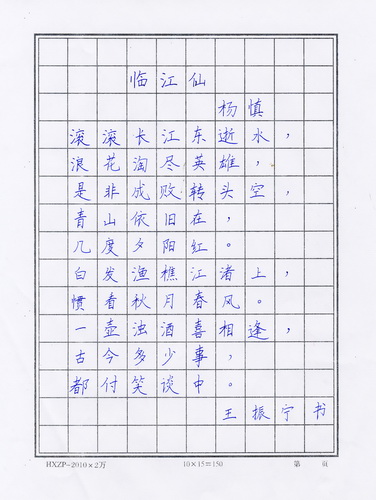 临江仙
杨慎
滚滚长江东逝水,
浪花淘尽英雄,
是非成败转头空,
青山依旧在,
几度夕阳红。
白发渔樵江渚上,
惯看秋月春风。
一壶浊酒喜相逢,
古今多少事,
都付笑谈中。
王振宁书
HXZP-2010×2万 10×15=150 第 页